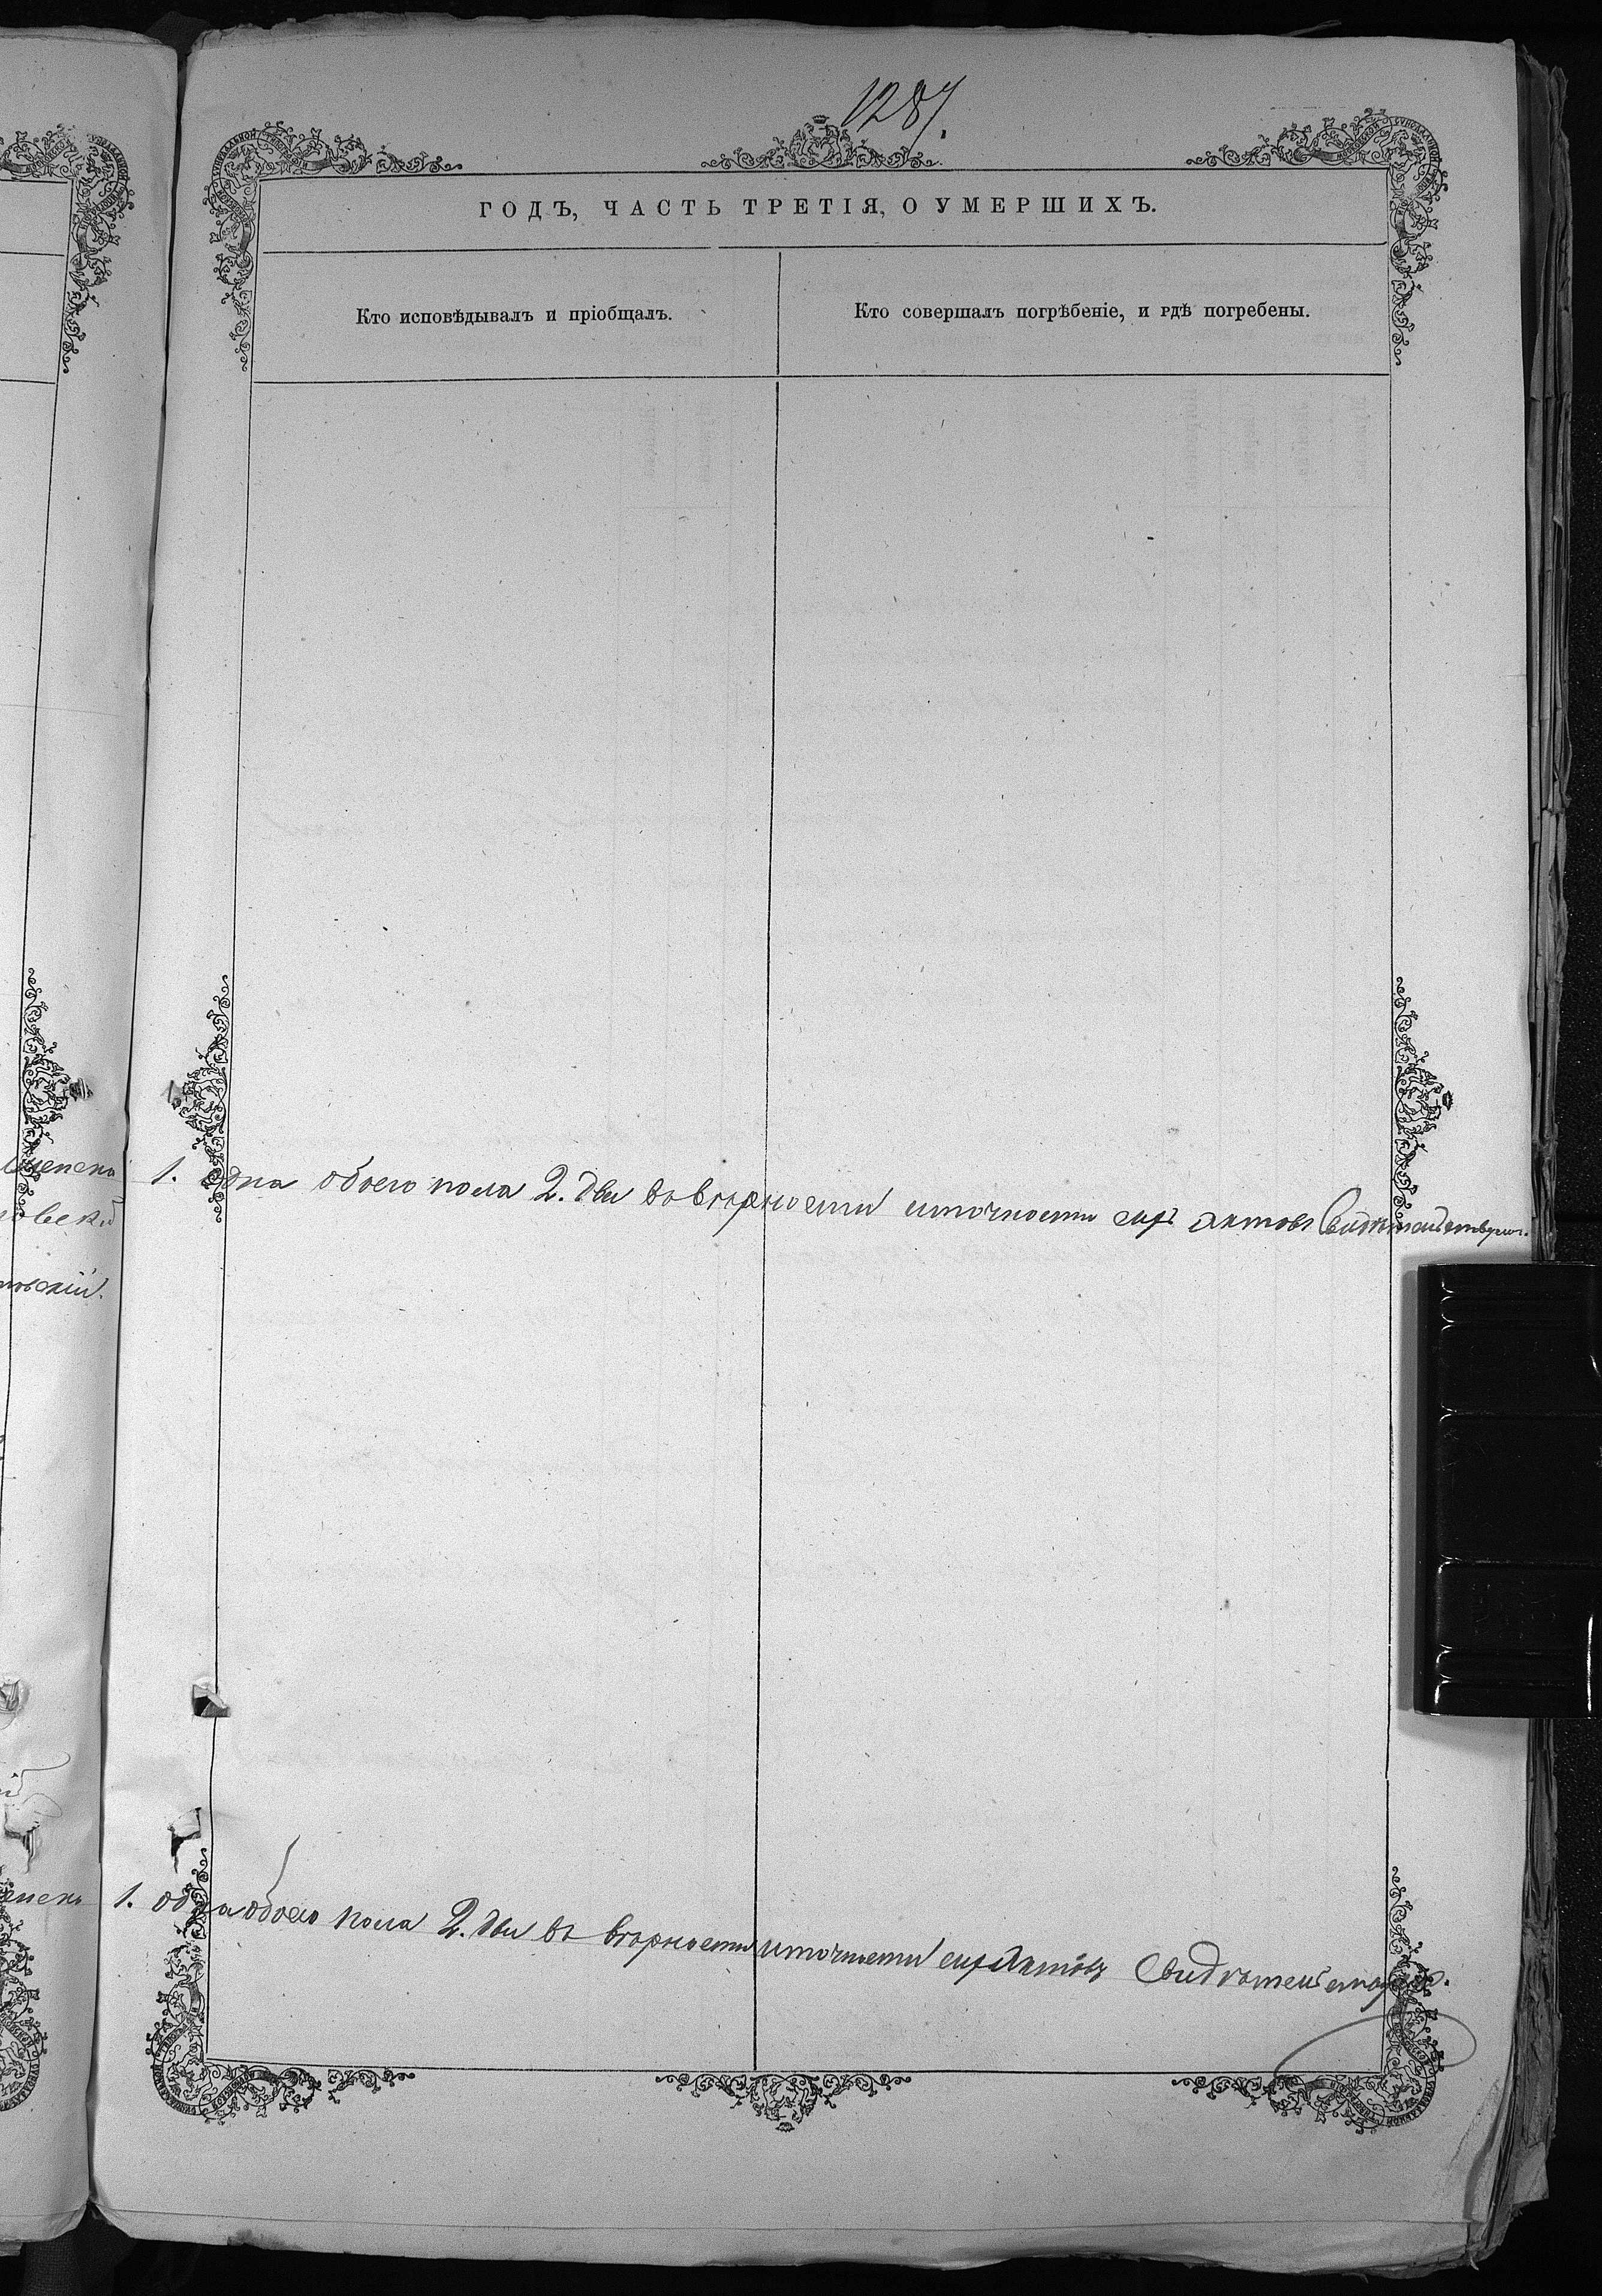 1287.
ГОДЪ, ЧАСТЬ ТРЕТІЯ, О УМЕРШИХЪ.
Кто исповѣдывалъ и пріобщалъ.
Кто совершалъ погрѣбеніе, и гдѣ погребены.
1. одна обоего пола 2. две въ вѣрности и точности сихъ актовъ Свидѣтельствуют.
1. одна обоего пола 2. две въ вѣрности и точности сихъ Актовъ Свидѣтельствуют.